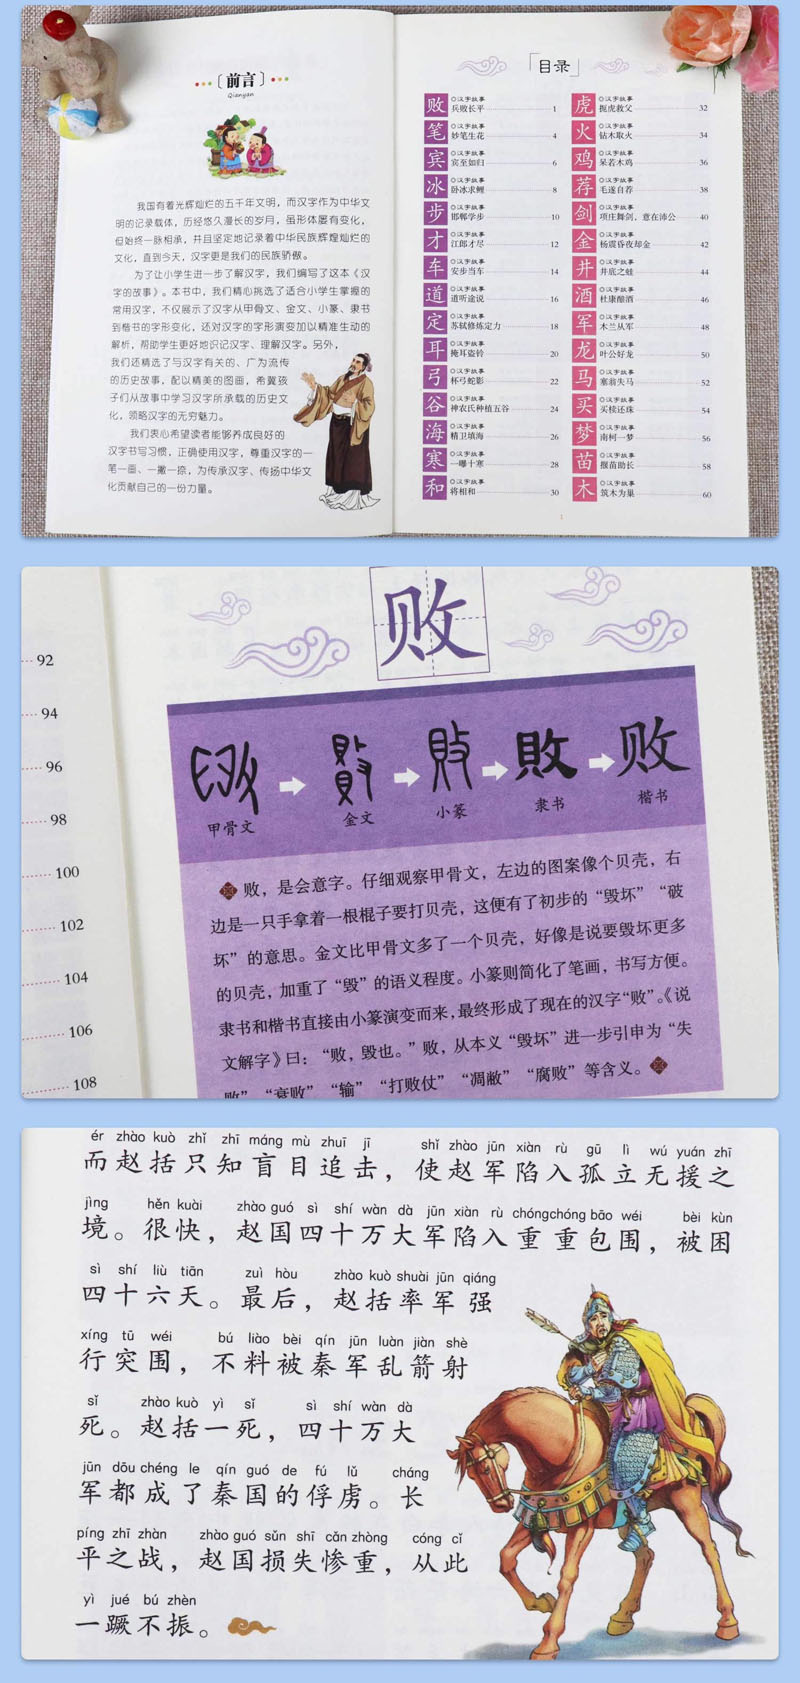 〔前言〕
Qianyan
我国有着光辉灿烂的五千年文明，而汉字作为中华文
明的记录载体，历经悠久漫长的岁月，虽形体屡有变化，
但始终一脉相承，并且坚定地记录着中华民族辉煌灿烂的
文化，直到今天，汉字更是我们的民族骄傲。
为了让小学生进一步了解汉字，我们编写了这本《汉
字的故事》。本书中，我们精心挑选了适合小学生掌握的
常用汉字，不仅展示了汉字从甲骨文、金文、小篆、隶书
到楷书的字形变化，还对汉字的字形演变加以精准生动的
解析，帮助学生更好地识记汉字、理解汉字。另外，
我们还精选了与汉字有关的、广为流传
的历史故事，配以精美的图画，希冀孩
子们从故事中学习汉字所承载的历史文
化，领略汉字的无穷魅力。
我们衷心希望读者能够养成良好的
汉字书写习惯，正确使用汉字，尊重汉字的一
笔一画、一撇一捺，为传承汉字、传扬中华文
化贡献自己的一份力量。
「目录」
败 汉字故事
兵败长平 1
笔 汉字故事
妙笔生花 4
宾 汉字故事
宾至如归 6
冰 汉字故事
卧冰求鲤 8
步 汉字故事
邯郸学步 10
才 汉字故事
江郎才尽 12
车 汉字故事
安步当车 14
道 汉字故事
道听途说 16
定 汉字故事
苏轼修炼定力 18
耳 汉字故事
掩耳盗铃 20
弓 汉字故事
杯弓蛇影 22
谷 汉字故事
神农氏种植五谷 24
海 汉字故事
精卫填海 26
寒 汉字故事
一曝十寒 28
和 汉字故事
将相和 30
虎 汉字故事
扼虎救父 32
火 汉字故事
钻木取火 34
鸡 汉字故事
呆若木鸡 36
荐 汉字故事
毛遂自荐 38
剑 汉字故事
项庄舞剑，意在沛公 40
金 汉字故事
杨震昏夜却金 42
井 汉字故事
井底之蛙 44
酒 汉字故事
杜康酿酒 46
军 汉字故事
木兰从军 48
龙 汉字故事
叶公好龙 50
马 汉字故事
塞翁失马 52
买 汉字故事
买椟还珠 54
梦 汉字故事
南柯一梦 56
苗 汉字故事
揠苗助长 58
木 汉字故事
筑木为巢 60
1
92
94
96
98
100
102
104
106
108
败
敗 败
甲骨文 金文 小篆 隶书 楷书
败，是会意字。仔细观察甲骨文，左边的图案像个贝壳，右
边是一只手拿着一根棍子要打贝壳，这便有了初步的“毁坏”“破
坏”的意思。金文比甲骨文多了一个贝壳，好像是说要毁坏更多
的贝壳，加重了“毁”的语义程度。小篆则简化了笔画，书写方便。
隶书和楷书直接由小篆演变而来，最终形成了现在的汉字“败”。《说
文解字》曰：“败，毁也。”败，从本义“毁坏”进一步引申为“失
败”“衰败”“输”“打败仗”“凋敝”“腐败”等含义。
ér zhào kuò zhǐ zhī máng mù zhuī jī shǐ zhào jūn xiàn rù gū lì wú yuán zhī
而赵括只知盲目追击，使赵军陷入孤立无援之
jìng hěn kuài zhào guó sì shí wàn dà jūn xiàn rù chóng chóng bāo wéi bèi kùn
境。很快，赵国四十万大军陷入重重包围，被困
sì shí liù tiān zuì hòu zhào kuò shuài jūn qiáng
四十六天。最后，赵括率军强
xíng tū wéi bú liào bèi qín jūn luàn jiàn shè
行突围，不料被秦军乱箭射
sǐ zhào kuò yì sǐ sì shí wàn dà
死。赵括一死，四十万大
jūn dōu chéng le qín guó de fú lǔ cháng
军都成了秦国的俘虏。长
píng zhī zhàn zhào guó sǔn shī cǎn zhòng cóng cǐ
平之战，赵国损失惨重，从此
yì jué bú zhèn
一蹶不振。